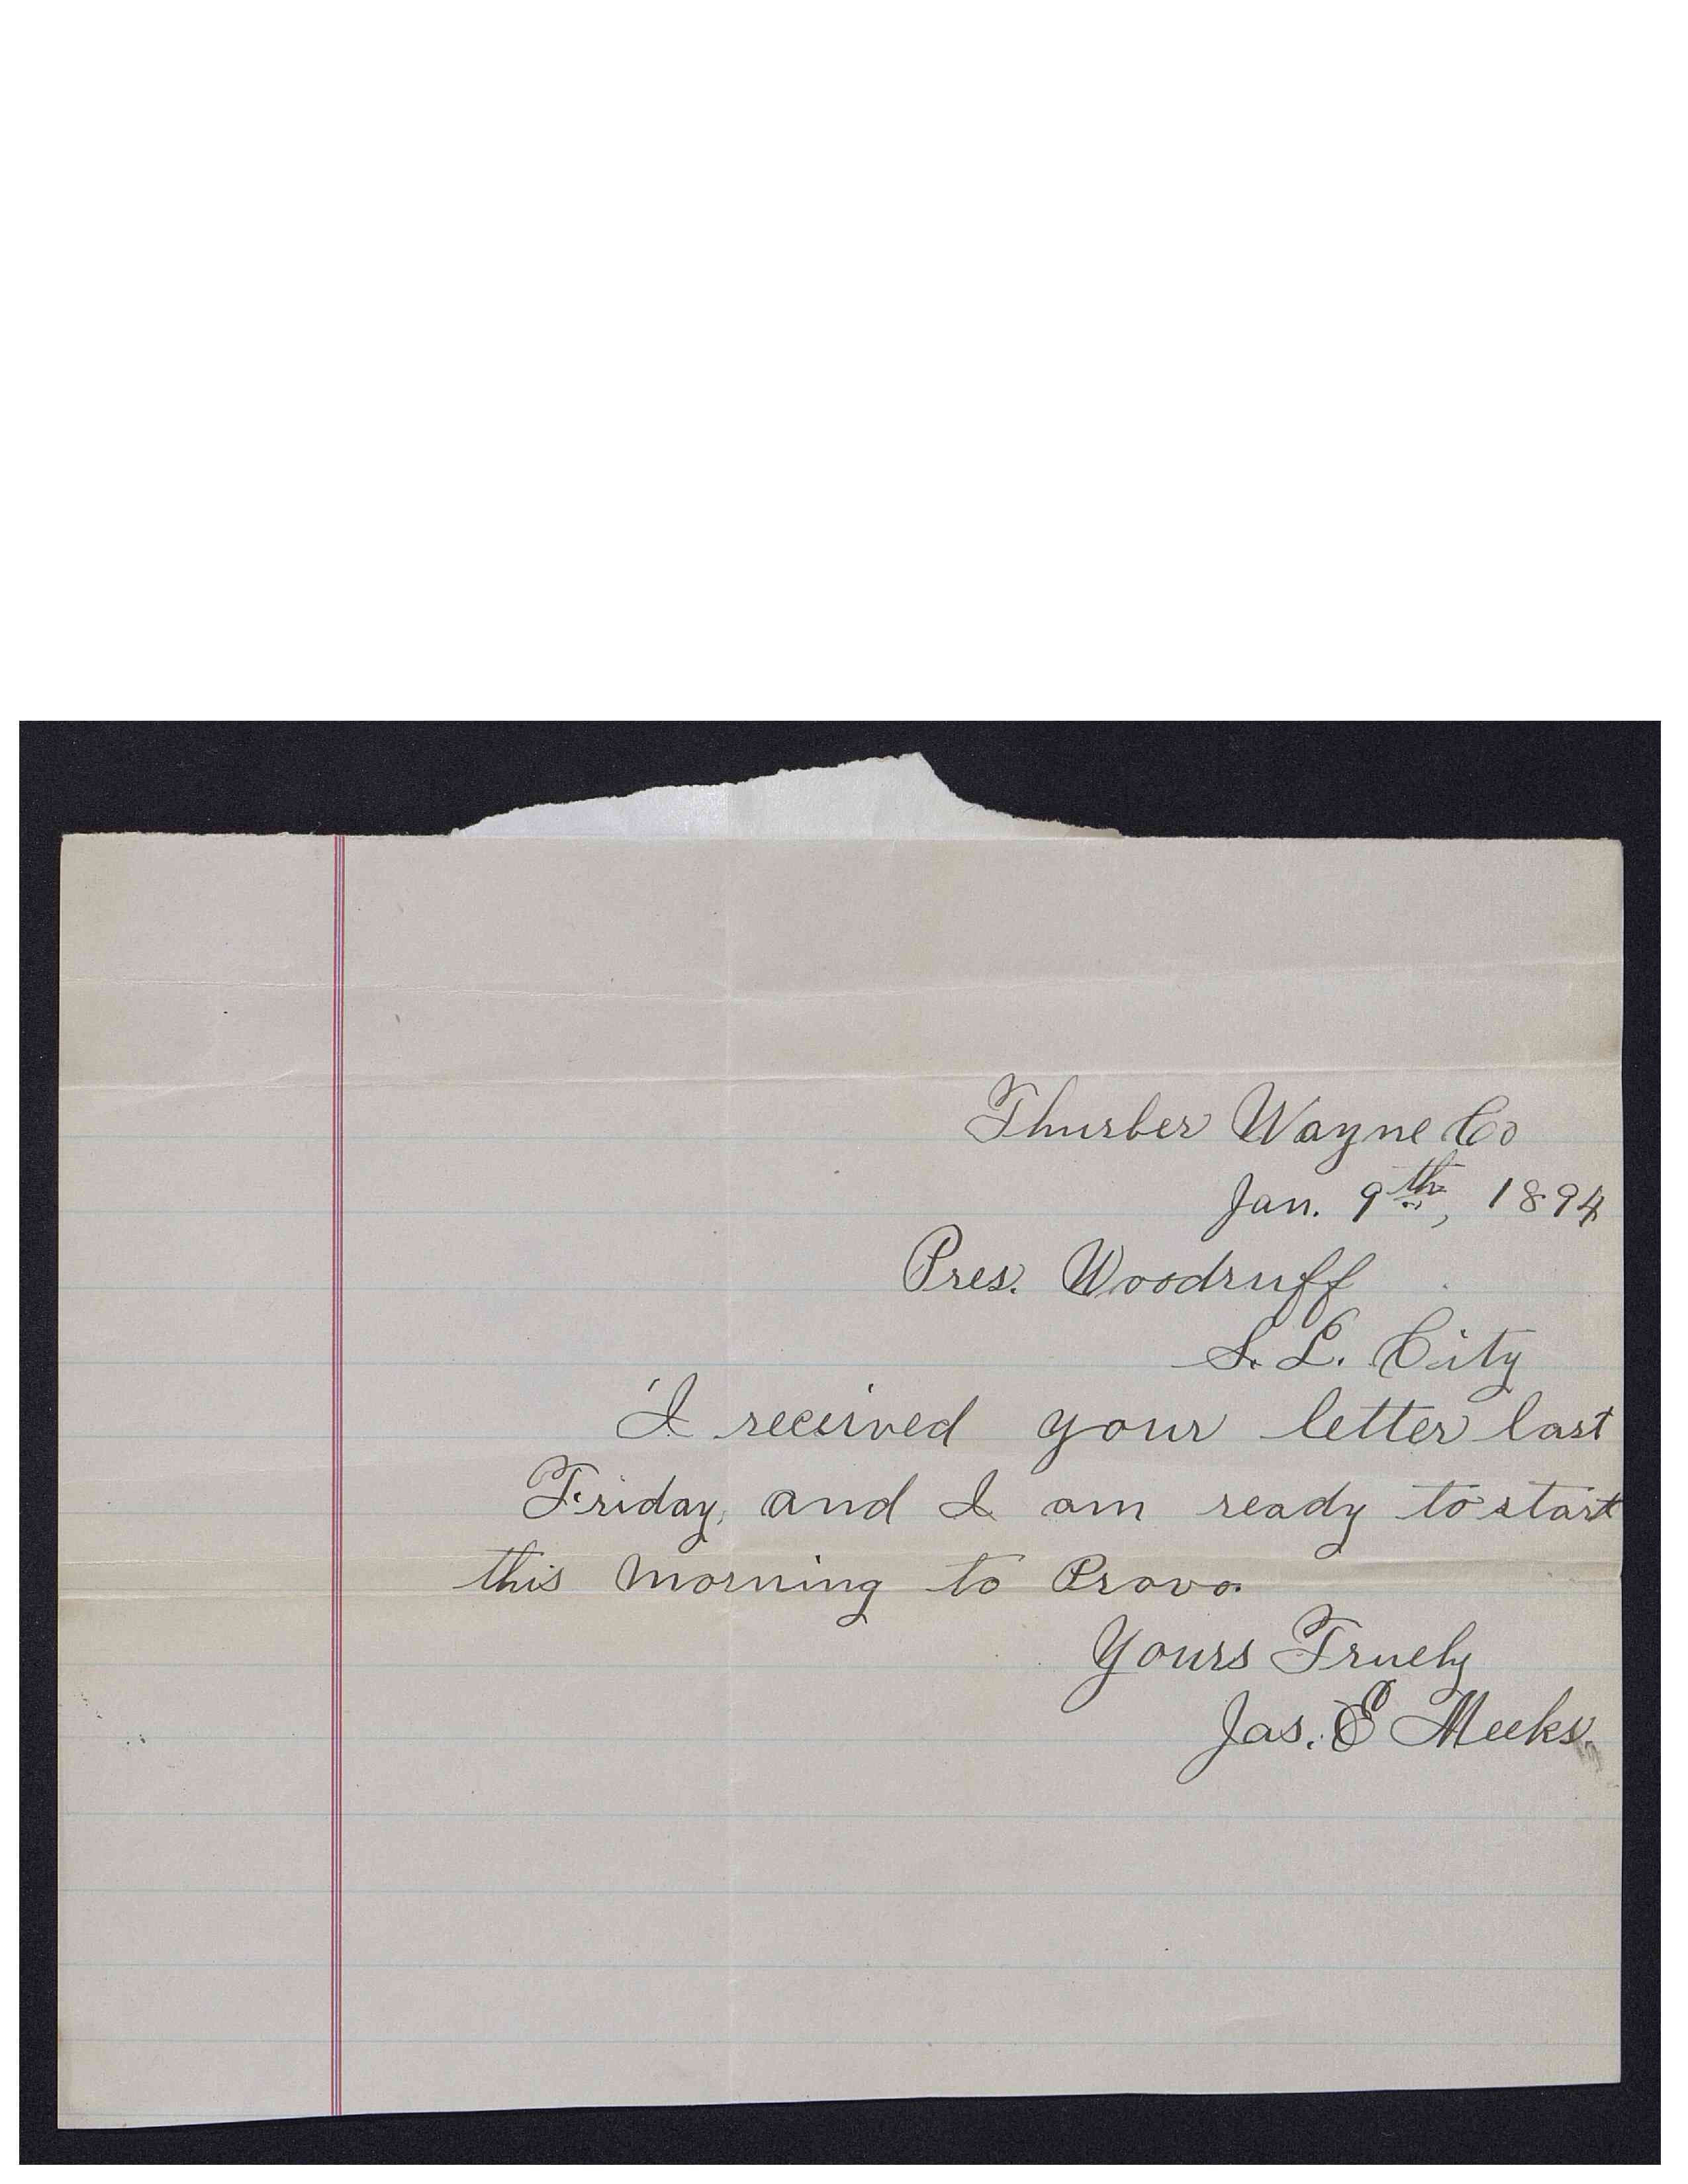 Thurber Wayne Co
Jan. 9th, 1894
Pres. Woodruff
S. L. City
I received your letter last
Friday, and I am ready to start
this morning to Provo.
Yours Truely
Jas. E Meeks.